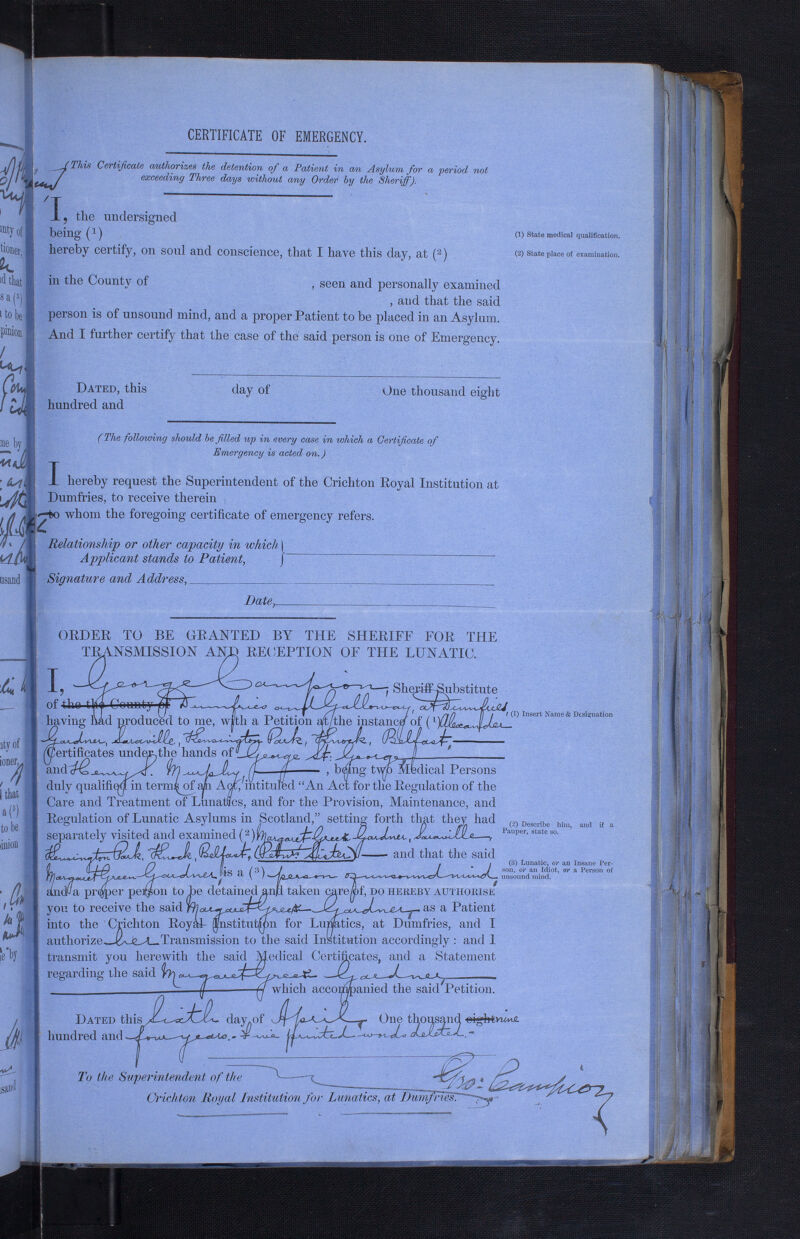 CERTIFICATE OF EMERGENCY.
(This Certificate authorizes the detention of a Patient in an Asylum for a period not
exceeding Three days without any Order by the Sheriff).
I, the undersigned
being (1)
(1) State medical qualification.
hereby certify, on soul and conscience, that I have this day, at (2)
(2) State place of examination.
in the County of , seen and personally examined
, and that the said
person is of unsound mind, and a proper Patient to be placed in an Asylum.
And I further certify that the case of the said person is one of Emergency.
DATED, this day of One thousand eight
hundred and
(The following should be filled up in every case in which a Certificate of
Emergency is acted on.)
I hereby request the Superintendent of the Crichton Royal Institution at
Dumfries, to receive therein
to whom the foregoing certificate of emergency refers.
Relationship or other capacity in which
Applicant stands to Patient,
Signature and Address,
Date,
ORDER TO BE GRANTED BY THE SHERIFF FOR THE
TRANSMISSION AND RECEPTION OF THE LUNATIC.
I, George Campion, Sheriff Substitute
of the the County of Dumfries and Galloway, at Dumfries
having had produced to me, with a Petition at the instance of (1) Alexander
(1) Insert Name & Designation
Gardner, Saraville, Kensington Park, Knock, Belfast,
Certificates under the hands of George St. George
and Henry S. Murphy, , being two Medical Persons
duly qualified in terms of an Act, intituled "An Act for the Regulation of the
Care and Treatment of Lunatics, and for the Provision, Maintenance, and
Regulation of Lunatic Asylums in Scotland," setting forth that they had
separately visited and examined (2) Margaret Greer Gardner, Saraville
(2) Describe him, and if a
Pauper, state so.
Kensington Park, Knock, Belfast, (Petnrs Sister) and that the said
Margaret Greer Gardner is a (3) person of unsound mind
(3) Lunatic, or an Insane Per-
son, or an Idiot, or a Person of
unsound mind.
and a proper person to be detained and taken care of, DO HEREBY AUTHORISE
you to receive the said Margaret Greer Gardner as a Patient
into the Crichton Royal Institution for Lunatics, at Dumfries, and I
authorize her Transmission to the said Institution accordingly : and I
transmit you herewith the said Medical Certificates, and a Statement
regarding the said Margaret Greer Gardner
which accompanied the said Petition.
DATED this Sixth day of April One thousand eight nine
hundred and four years.- Five printed words deleted.-
Geo: Campion
To the Superintendent of the
Crichton Royal Institution for Lunatics, at Dumfries.